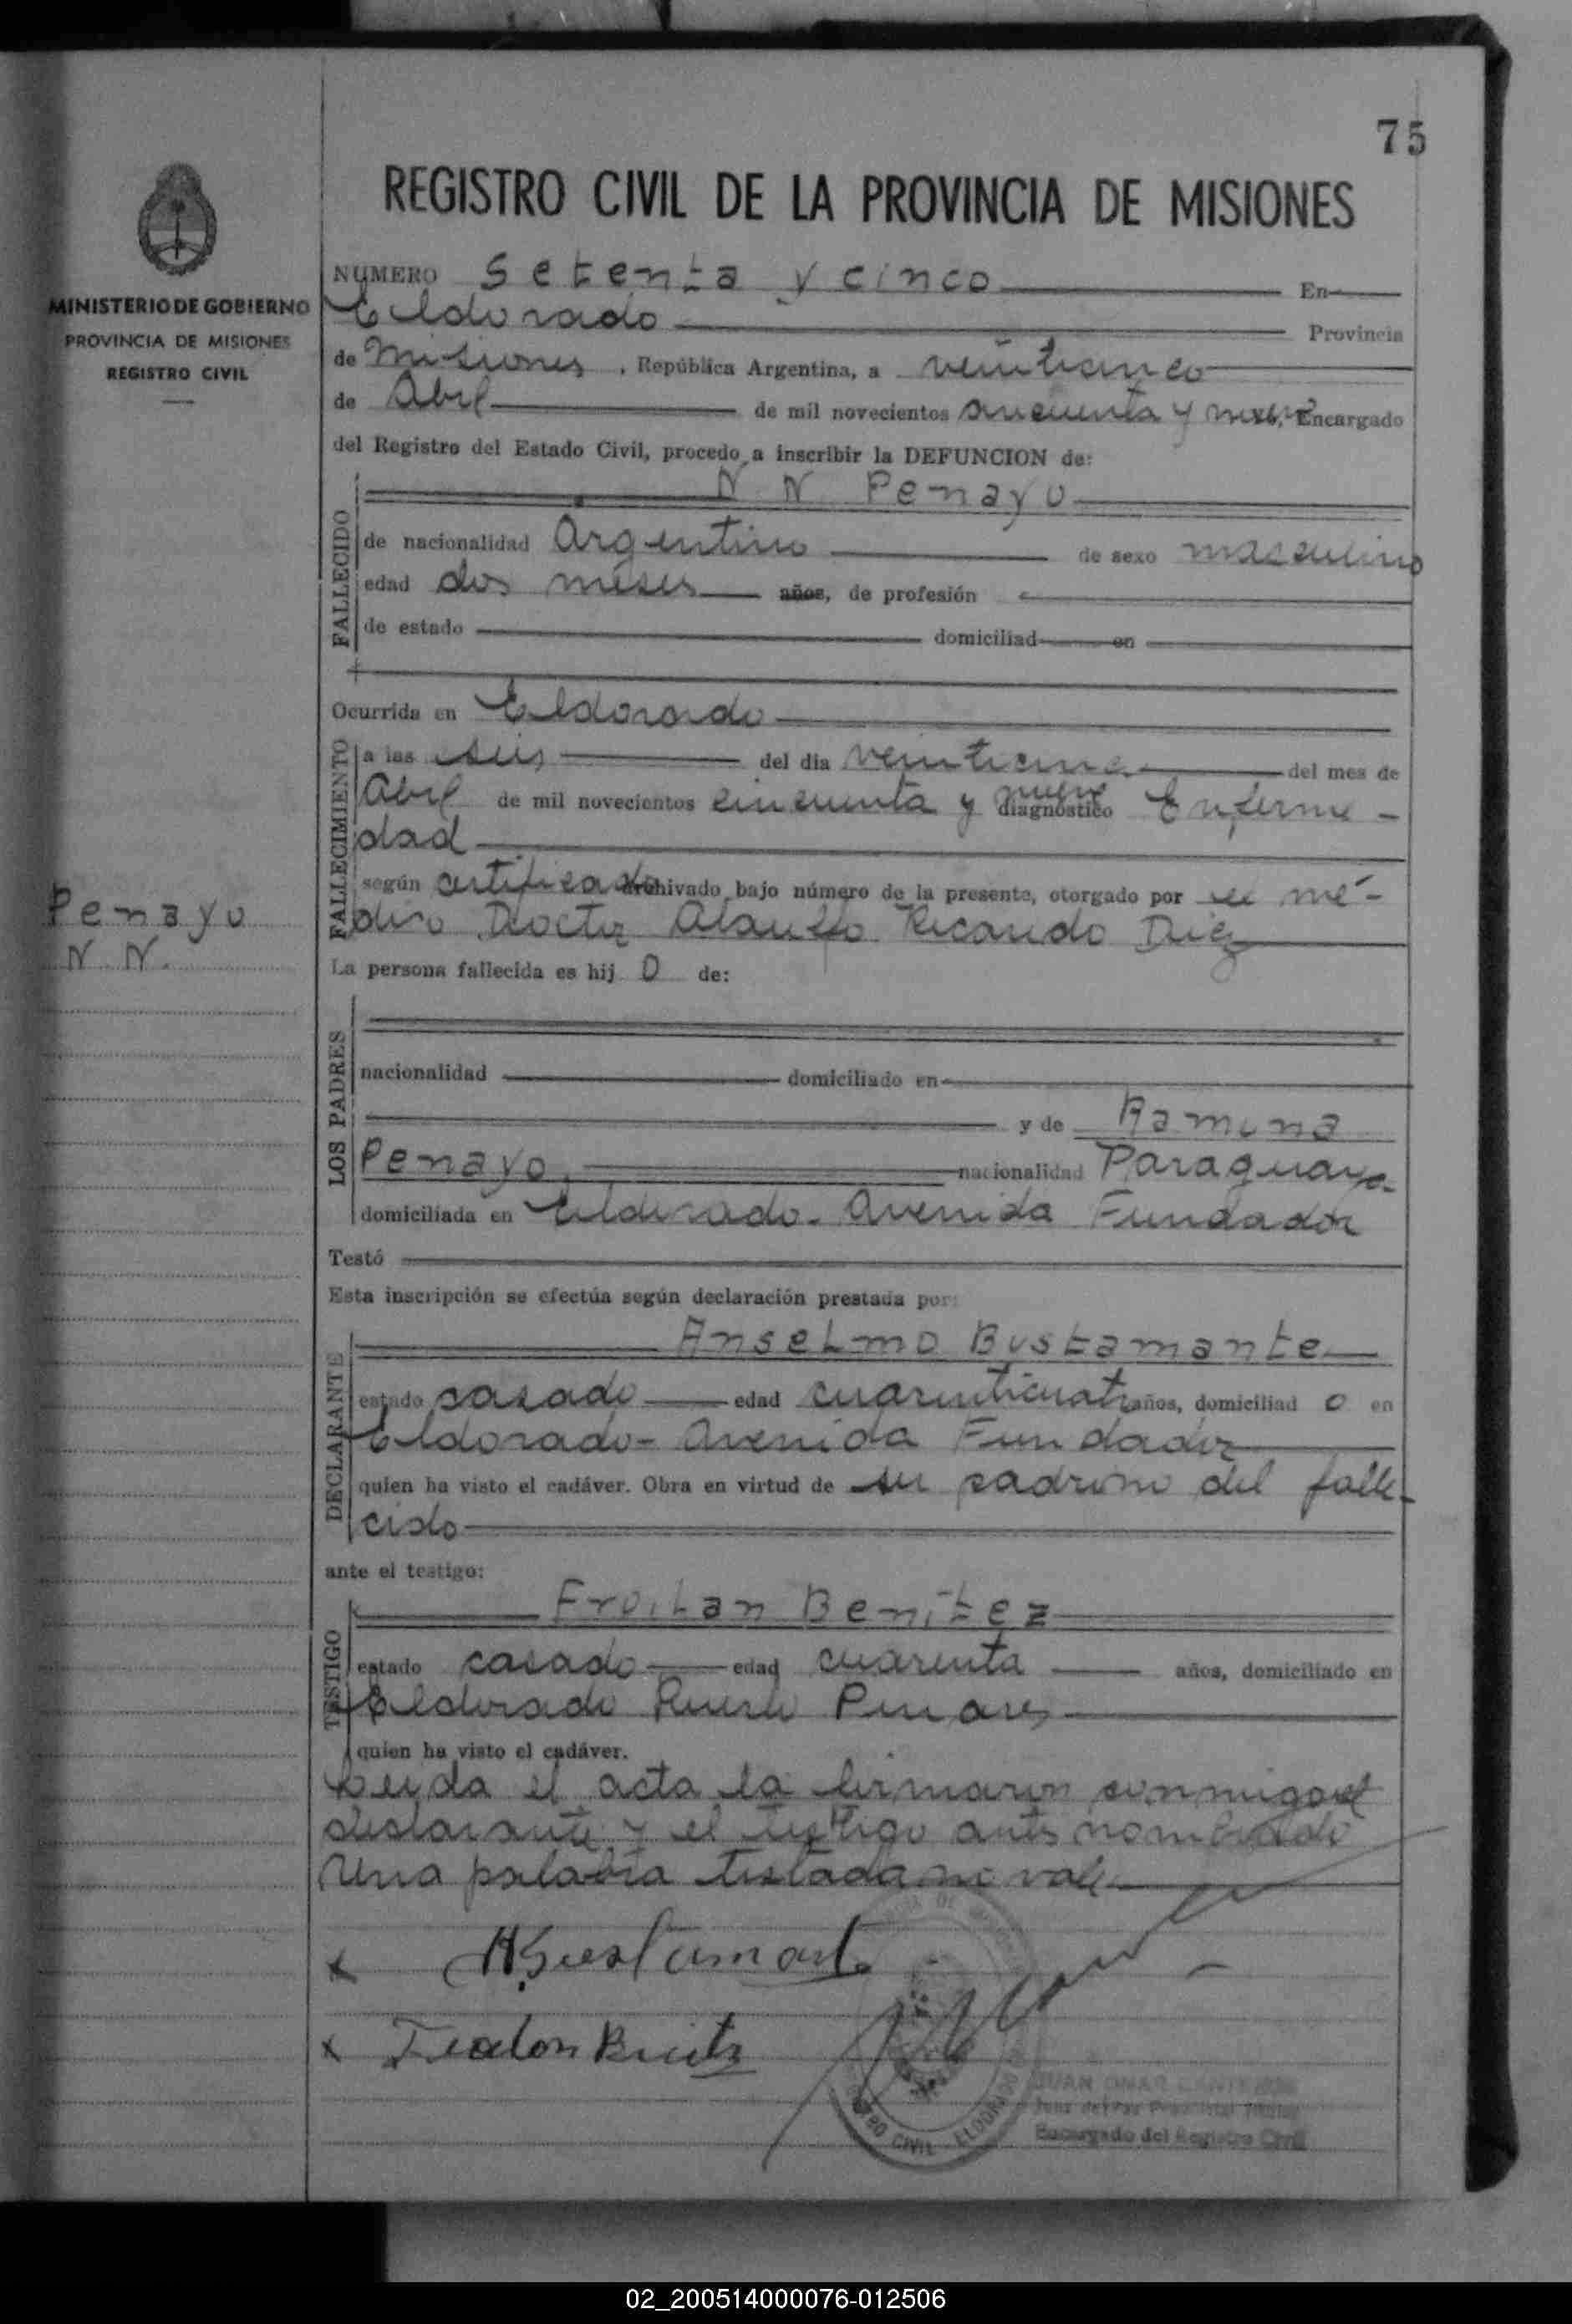 75
REGISTRO CIVIL DE LA PROVINCIA DE MISIONES
MINISTERIO DE GOBIERNO
PROVINCIA DE MISIONES
REGISTRO CIVIL
NUMERO Setenta y cinco En
Eldorado Provincia
de Misiones, República Argentina, a veinticinco
de Abril de mil novecientos cincuenta y nueve, Encargado
del Registro del Estado Civil, procedo a inscribir la DEFUNCION de:
N N Penayo
FALLECIDO
de nacionalidad Argentino de sexo masculino
edad dos meses años, de profesión
de estado domiciliad en
Ocurrida en Eldorado
FALLECIMIENTO
a las seis del dia veinticinco del mes de
Abril de mil novecientos cincuenta y nueve diagnóstico Enferme-
dad
según certificado archivado bajo número de la presente, otorgado por el mé-
dico Doctor Ataulfo Ricardo Diez
Penayo
N N.
La persona fallecida es hij O de:
LOS PADRES
nacionalidad domiciliado en
y de Ramona
Penayo, nacionalidad Paraguaya
domiciliada en Eldorado- Avenida Fundador
Testó
Esta inscripción se efectúa según declaración prestada por:
Anselmo Bustamante
DECLARANTE
estado casado edad cuarenticuatro años, domiciliad o en
Eldorado- Avenida Fundador
quien ha visto el cadáver. Obra en virtud de ser padrino del falle-
cido
ante el testigo:
Froilan Benitez
TESTIGO
estado casado edad cuarenta años, domiciliado en
Eldorado Puerto Pinares
quien ha visto el cadáver.
Leida el acta la firmaron conmigo el
declarante y el testigo antes nombrado
Una palabra testada no vale
x ABustamante
x Froilan Benitez
REGISTRO CIVIL - ELDORADO
JUAN OMAR
Juez de Paz
Encargado del Registro Civil
02_200514000076-012506